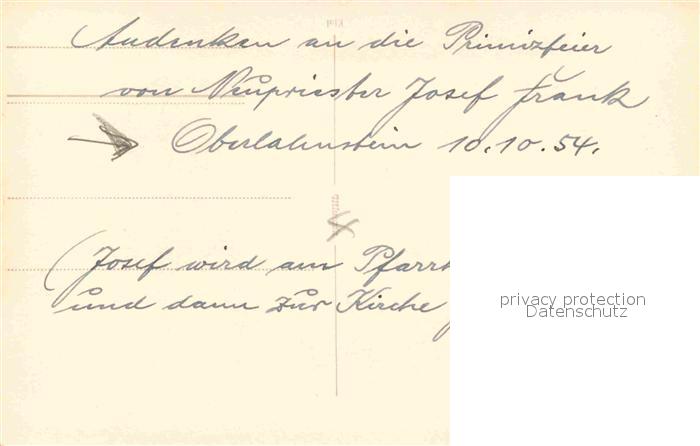 Andenken an die Primizfeier
von Neupriester Josef Frank
Oberlahnstein 10.10.54.
(Josef wird am
und dann zur Kirche
privacy protection
Datenschutz